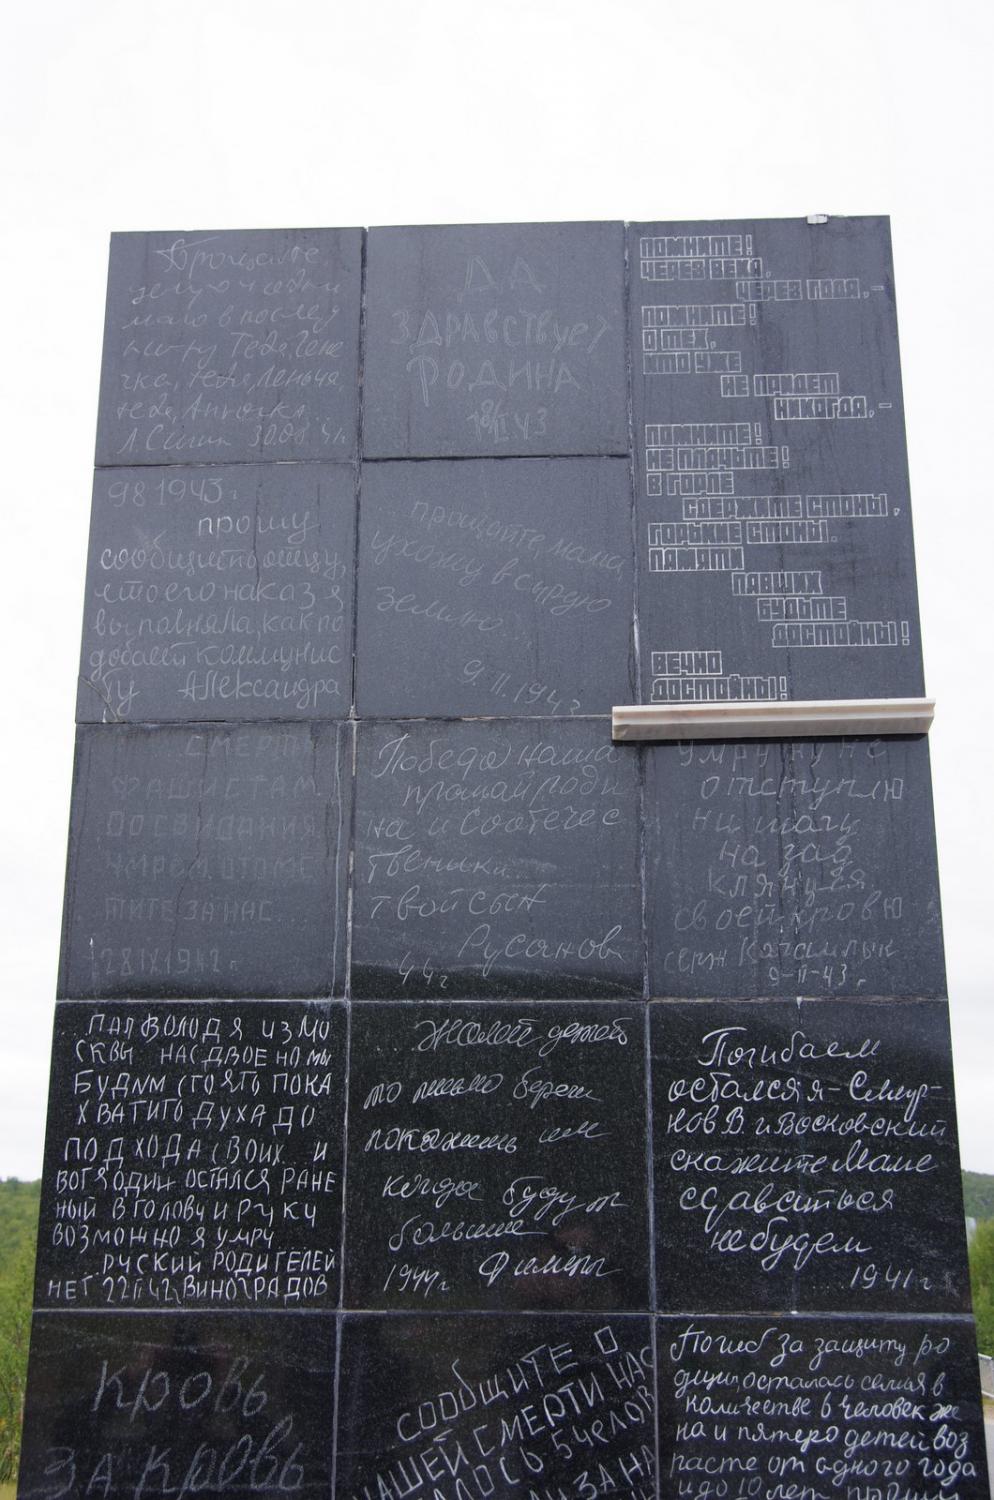 Прощальное
целую и обни
маю в послед
ний раз тебя Гене
чка, тебя Леньчя
тебя, Анночка...
30.08.41
ДА
ЗДРАВствуеТ
РОДИНА
18/II 43
ПОМНИТЕ!
ЧЕРЕЗ ВЕКА,
ЧЕРЕЗ ГОДА,-
ПОМНИТЕ!
О ТЕХ,
КТО УЖЕ
НЕ ПРИДЕТ
НИКОГДА,-
ПОМНИТЕ!
НЕ ПЛАЧЬТЕ!
В ГОРЛЕ
СДЕРЖИТЕ СТОНЫ,
ГОРЬКИЕ СТОНЫ.
ПАМЯТИ
ПАВШИХ
БУДЬТЕ
ДОСТОЙНЫ!
ВЕЧНО
ДОСТОЙНЫ!
98 1943г
прошу
сообщить отцу,
что его наказ я
выполняла, как по
добает коммунис
ту Александра
...прощайте, мама,
ухожу в сырую
землю...
9.II.1943
СМЕРТЬ
ФАШИСТАМ
ДО СВИДАНИЯ
УМРЕМ ОТОМС
ТИТЕ ЗА НАС...
28 IX 1942г
Победа наша
прощай роди
на и соотечес
твеники...
твой сын
Русанов
44г
умру но не
отступлю
ни шагу
на зад
клянуся
своей кровю
серж
9-II-43г
...ПАЛ ВОЛОДЯ ИЗ МО
СКВЫ НАС ДВОЕ НО МЫ
БУДИМ СТОЯТЬ ПОКА
ХВАТИТ ДУХА ДО
ПОДХОДА СВОИХ И
ВОТ Я ОДИН ОСТАЛСЯ РАНЕ
НЫЙ В ГОЛОВУ И РУКУ
ВОЗМОЖНО Я УМРУ
...РУСКИЙ РОДИТЕЛЕЙ
НЕТ 22 II 42г ВИНОГРАДОВ
...Жалей детей
то письмо береги
покажишь им
когда будут
большие
1944г
Погибаем
остался я - Смир-
нов В. и Восковский
скажите Маме
сдаватиться
не будем
...1941г
Кровь
за кровь
СООБЩИТЕ О
НАШЕЙ СМЕРТИ НАС
5 ЧЕЛОВ
ЗА
Погиб за защиту ро
дины осталась семья в
количестве 6 человек же
на и пятеро детей воз
расте от одного года
и до 10 лет прошу